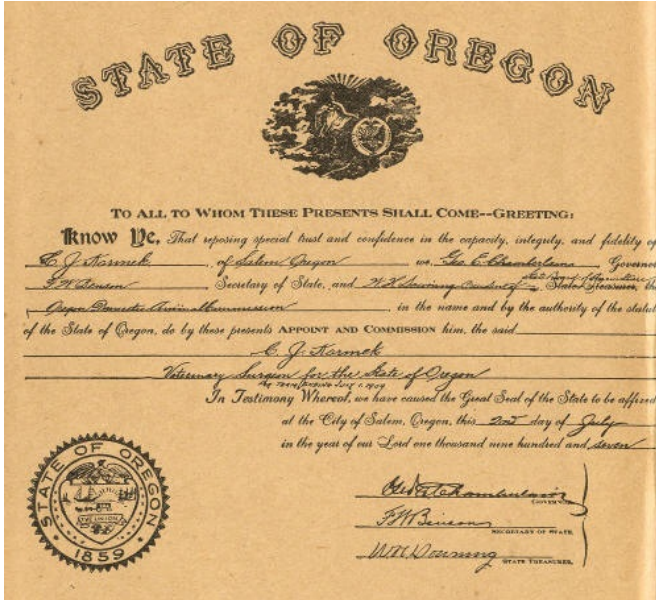 STATE OF OREGON
TO ALL TO WHOM THESE PRESENTS SHALL COME--GREETING:
Know Ye, That reposing special trust and confidence in the capacity, integrity, and fidelity of
C. J. Kormek, of Salem Oregon we, Geo. E. Chamberlain Governor
F. W. Benson Secretary of State, and W. H. Downing State Treasurer, the
Oregon Domestic Animal Commission, in the name and by the authority of the statut
of the State of Oregon, do by these presents APPOINT AND COMMISSION him, the said
C. J. Kormek
Veterinary Surgeon for the State of Oregon
for term ending July 1 1909
In Testimony Whereof, we have caused the Great Seal of the State to be affixed
at the City of Salem, Oregon, this 2nd day of July
in the year of our Lord one thousand nine hundred and seven
STATE OF OREGON
THE UNION
1859
Geo. E. Chamberlain
GOVERNOR
F. W. Benson
SECRETARY OF STATE.
W. H. Downing
STATE TREASURER.